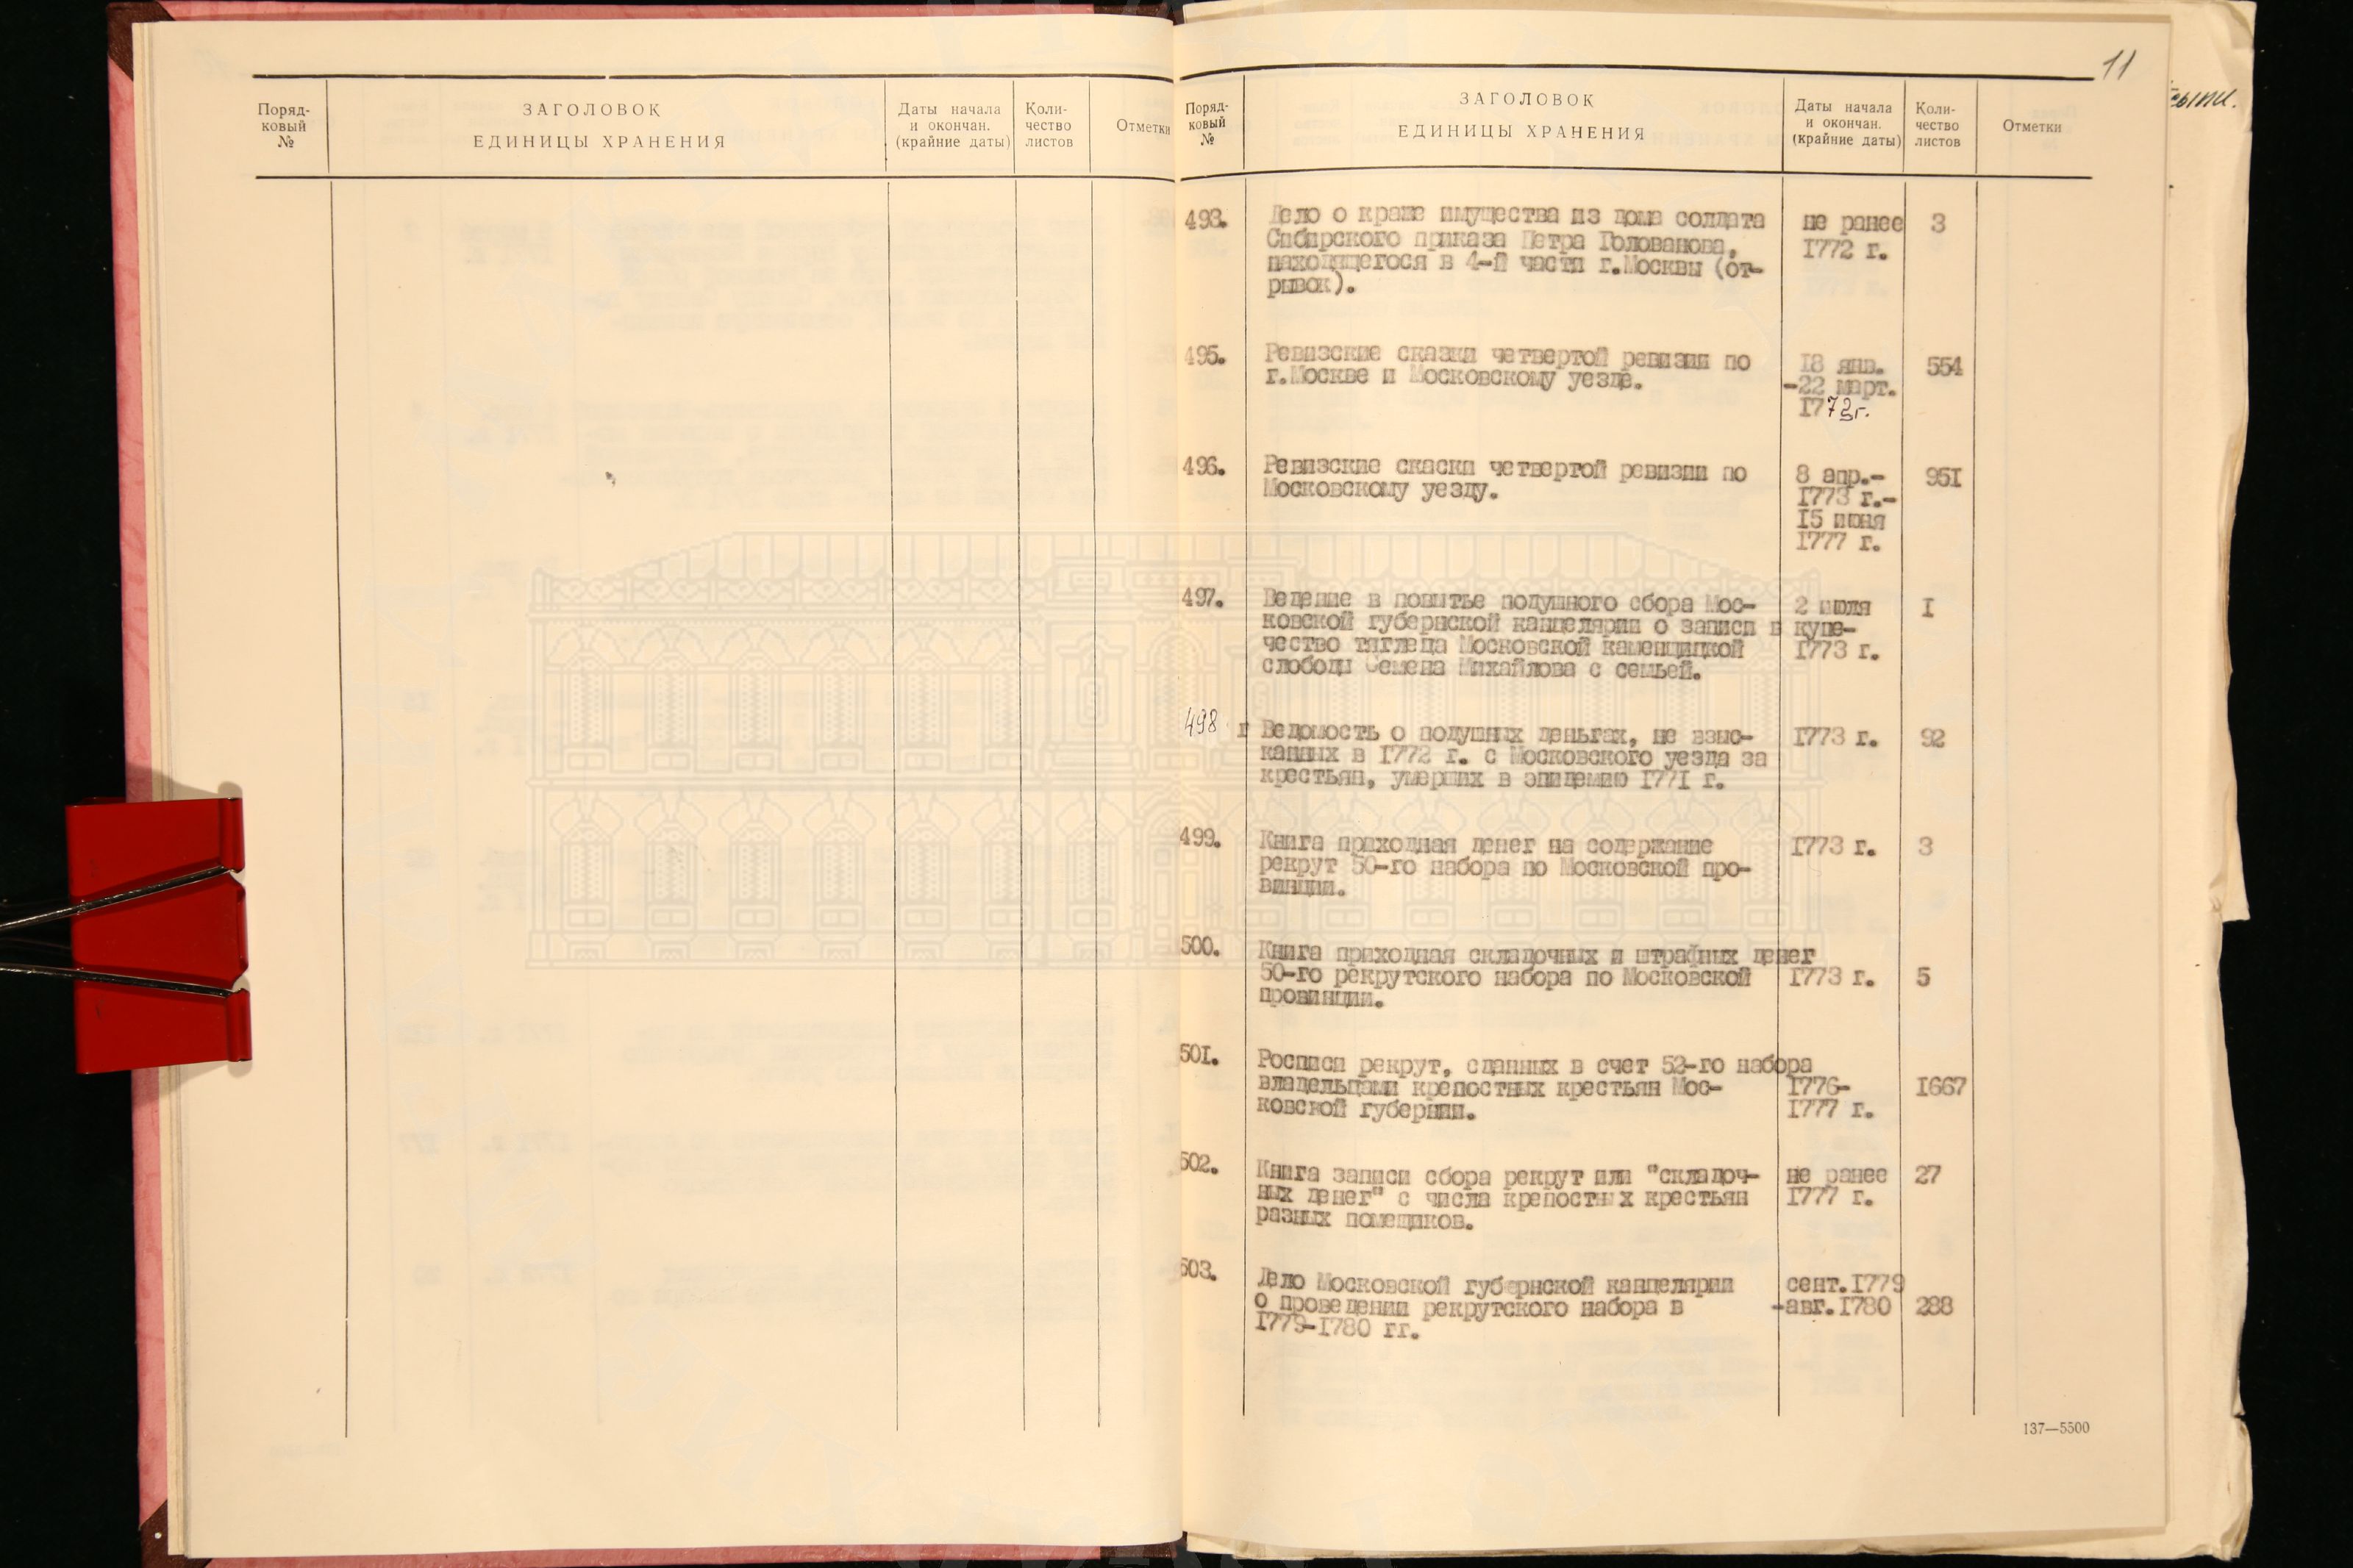 Поряд-
ковый
№
ЗАГОЛОВОК
ЕДИНИЦЫ ХРАНЕНИЯ
Даты начала
и окончан.
(крайние даты)
Коли-
чество
листов
Отметки
11
Поряд-
ковый
№
ЗАГОЛОВОК
ЕДИНИЦЫ ХРАНЕНИЯ
Даты начала
и окончан.
(крайние даты)
Коли-
чество
листов
Отметки
493. Дело о краже имущества из дома солдата не ранее 3
Сибирского приказа Петра Голованова, 1772 г.
находящегося в 4-й части г.Москвы (от-
рывок).
495. Ревизские сказки четвертой ревизии по 18 янв. 554
г.Москве и Московскому уезде. -22 март.
1773г.
496. Ревизские скаски четвертой ревизии по 8 апр.- 951
Московскому уезду. 1773 г.-
15 июня
1777 г.
497. Ведение в повытье подушного сбора Мос- 2 июля I
ковской губернской канцелярии о записи в купе-
чество тяглеца Московской каменщицкой 1773 г.
слободы Семена Михайлова с семьей.
498 г Ведомость о подушных деньгах, не взыс- 1773 г. 92
канных в 1772 г. с Московского уезда за
крестьян, умерших в эпидемию 1771 г.
499. Книга приходная денег на содержание 1773 г. 3
рекрут 50-го набора по Московской про-
винции.
500. Книга приходная складочных и штрафных денег
50-го рекрутского набора по Московской 1773 г. 5
провинции.
501. Росписи рекрут, сданных в счет 52-го набора
владельцами крепостных крестьян Мос- 1776- 1667
ковской губернии. 1777 г.
502. Книга записи сбора рекрут или "складоч- не ранее 27
ных денег" с числа крепостных крестьян 1777 г.
разных помещиков.
503. Дело Московской губернской канцелярии сент.1779
о проведении рекрутского набора в -авг.1780 288
1779-1780 гг.
137—5500